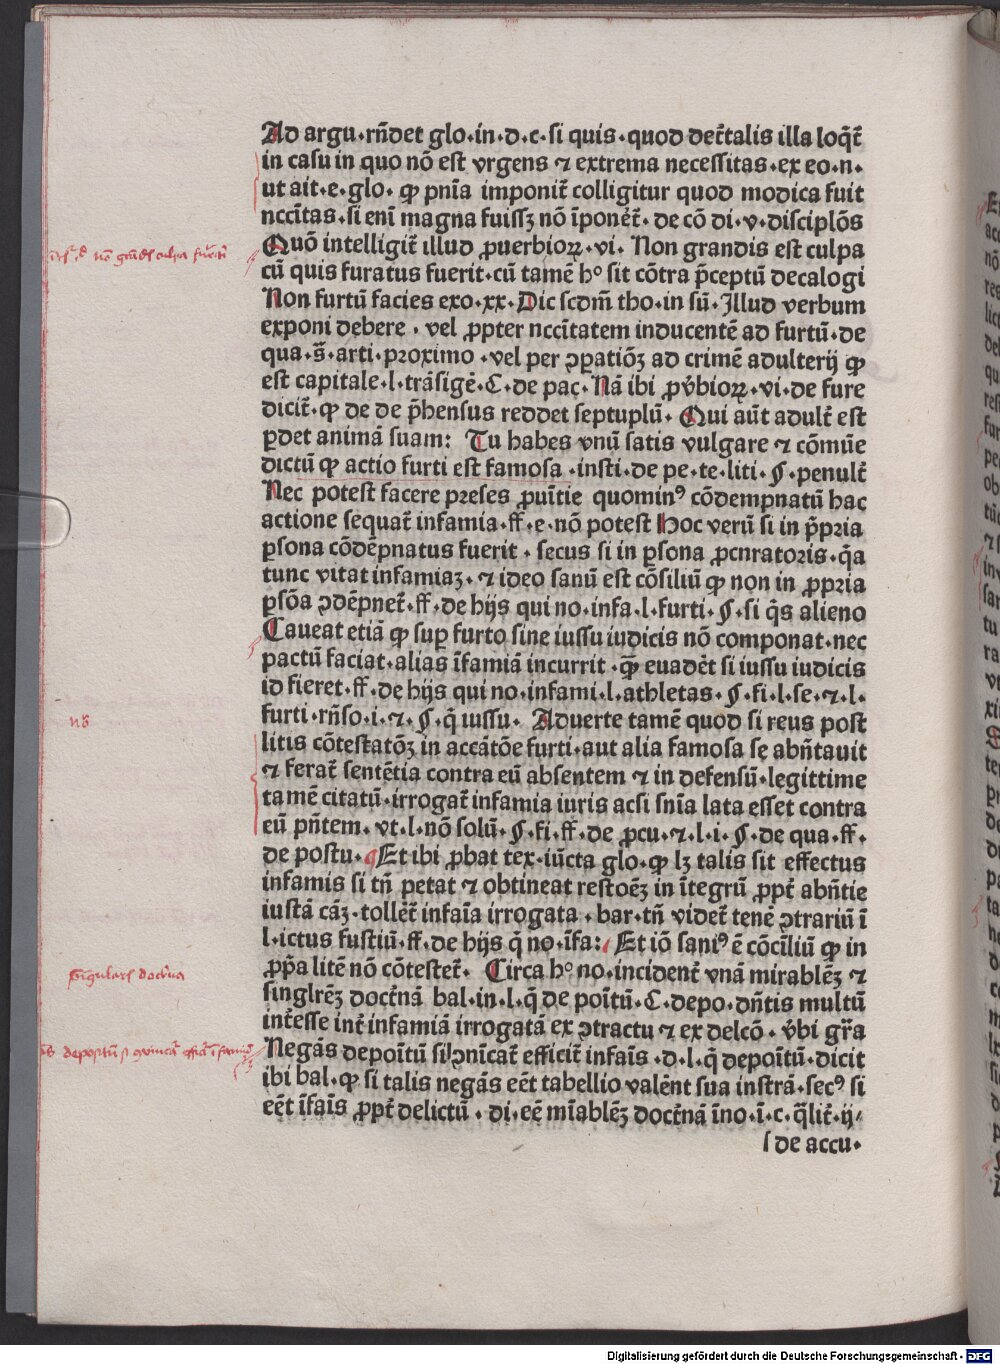 Ad argu·rñdet glo·in·d·c·si quis·quod dec̃talis illa loqt̃
in casu in quo nõ est vrgens ⁊ extrema necessitas·ex eo·n·
ut ait·e·glo· ꝙ pnĩa imponit̃ colligitur quod modica fuit
nccĩtas·si enĩ magna fuissꝫ nõ ĩponẽt̃· de cõ di·v·disciplõs
Quõ intelligit̃ illud ꝓuerbioꝝ·vi· Non grandis est culpa
cũ quis furatus fuerit·cũ tamẽ hº sit cõtra p̃ceptũ decalogi
Non furtũ facies exo·xx·Dic scdm̃ tho·in sũ·Illud verbum
exponi debere · vel ꝓpter nccĩtatem inducentẽ ad furtũ·de
qua·s̃·arti·proximo ·vel per ɔpatiõꝫ ad crimẽ adulterij ꝙ
est capitale·l·trãsigẽ·C·de pac·Nã ibi ꝓv̉bioꝝ·vi·de fure
dicit̃·ꝙ de de p̃hensus reddet septuplũ· Qui aũt adult̃ est
ꝑdet animã suam: Tu habes vnũ satis vulgare ⁊ cõmũe
dictũ ꝙ actio furti est famosa ·insti·de pe·te·liti·§·penult̃
Nec potest facere preses ꝓuĩtie quominꝰ cõdempnatũ hac
actione sequat̃ infamia·ff·e·nõ potest Hoc verũ si in p̃pria
ꝑsona cõdẽpnatus fuerit · secus si in ꝑsona ꝓcnratoris·q̃a
tunc vitat infamiaꝫ·⁊ ideo sanũ est cõsiliũ ꝙ non in ꝓpria
ꝑsõa ɔdẽpnet̃·ff·de hijs qui no·infa·l·furti·§·si q̃s alieno
Caueat etiã ꝙ suꝑ furto sine iussu iudicis nõ componat·nec
pactũ faciat·alias ĩfamiã incurrit ·ꝙ̃ euadẽt si iussu iudicis
id fieret·ff·de hijs qui no·infami·l·athletas·§·fi·l·se·⁊·l·
furti·rñso·i·⁊·§·q̃ iussu· Aduerte tamẽ quod si reus post
litis cõtestatõꝫ in accãtõe furti·aut alia famosa se abñtauit
⁊ ferat̃ sentẽtia contra eũ absentem ⁊ in defensũ·legittime
tamẽ citatũ·irrogat̃ infamia iuris acsi snĩa lata esset contra
eũ pñtem·vt·l·nõ solũ·§·fi·ff·de ꝓcu·⁊·l·i·§·de qua·ff·
de postu·¶Et ibi ꝓbat tex·iũcta glo·ꝙ lꝫ talis sit effectus
infamis si tñ petat ⁊ obtineat restoẽꝫ in ĩtegrũ ꝓpt̃ abñtie
iustã cãꝫ·tollẽt̃ infaĩa irrogata · bar·tñ videt̃ tenẽ ɔtrariũ ĩ
l·ictus fustiũ·ff·de hijs q̃ no·ĩfa: Et iõ saniꝰ ẽ cõciliũ ꝙ in
ꝓp̃a litẽ nõ cõtestet̃· Circa hº no·incident̃ vnã mirablẽꝫ ⁊
singlrẽꝫ doct̃nã bal·in·l·q̃ de poĩtũ·C·depo·dñtis multũ
int̃esse int̃ infamiã irrogatã ex ɔtractu ⁊ ex delcõ· v̉bi gr̃a
Negãs depoĩtũ siɔnĩcat̃ efficit̃ infaĩs ·d·l·q̃ depoĩtũ·dicit
ibi bal·ꝙ si talis negãs eẽt tabellio valẽnt sua instrã·secꝰ si
eẽt ĩfaĩs ꝓpt̃ delictũ · di·eẽ mĩablẽꝫ doct̃nã ĩno·ĩ·c·q̃lit̃·ij/
ſ de accu·
nõ grãdis culpa fur̃ti
nᷓ
singularis doct̉na
Digitalisierung gefördert durch die Deutsche Forschungsgemeinschaft - DFG